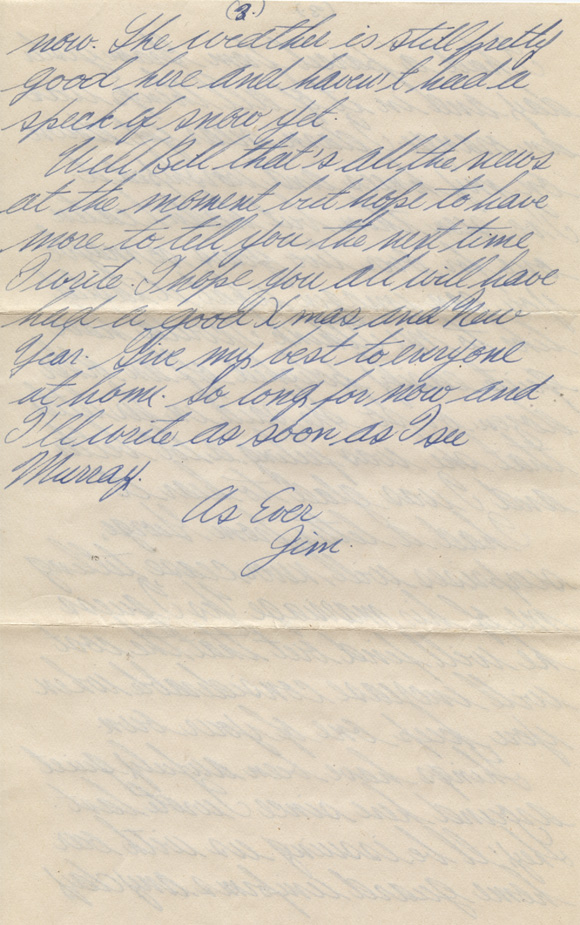 (3.)
now. The weather is still pretty
good here and haven't had a
speck of snow yet.
Well Bill that's all the news
at the moment but hope to have
more to tell you the next time
I write. I hope you all will have
had a good Xmas and New
Year. Give my best to everyone
at home. So long for now and
I'll write as soon as I see
Murray.
As Ever
Jim.